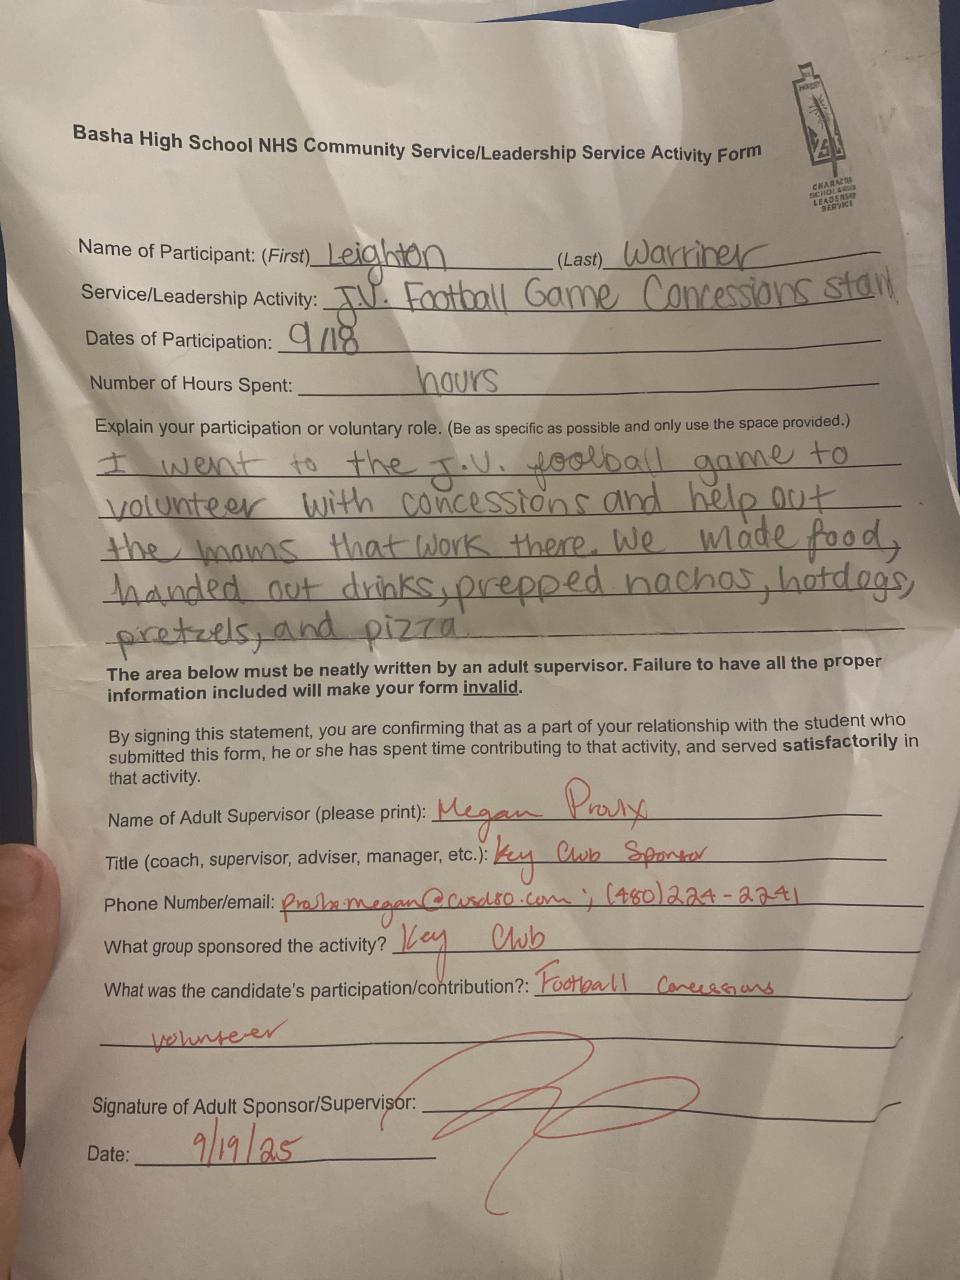 CHARACTER
SCHOLARSHIP
LEADERSHIP
SERVICE
Basha High School NHS Community Service/Leadership Service Activity Form
Name of Participant: (First) Leighton (Last) Warriner
Service/Leadership Activity: J.V. Football Game Concessions stan
Dates of Participation: 9/18
Number of Hours Spent: hours
Explain your participation or voluntary role. (Be as specific as possible and only use the space provided.)
I went to the J.V. football game to
volunteer with concessions and help out
the moms that work there. We made food,
handed out drinks, prepped nachos, hotdogs,
pretzels, and pizza.
The area below must be neatly written by an adult supervisor. Failure to have all the proper
information included will make your form invalid.
By signing this statement, you are confirming that as a part of your relationship with the student who
submitted this form, he or she has spent time contributing to that activity, and served satisfactorily in
that activity.
Name of Adult Supervisor (please print): Megan
Title (coach, supervisor, adviser, manager, etc.): Key Club Sponsor
Phone Number/email: ; (480)224-2241
What group sponsored the activity? Key Club
What was the candidate's participation/contribution?: Football Concessions
volunteer
Signature of Adult Sponsor/Supervisor:
Date: 9/19/25